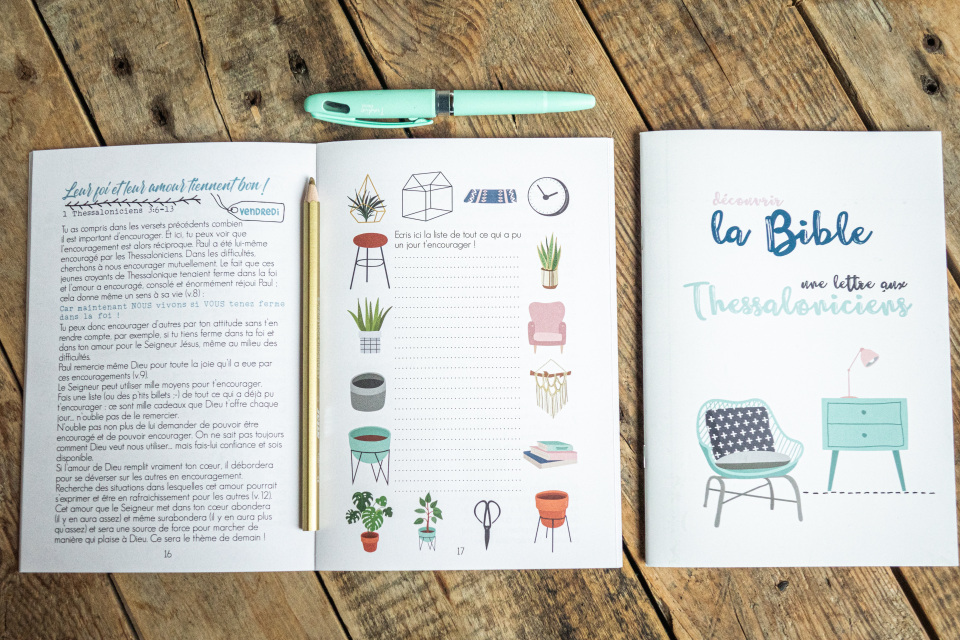 Leur foi et leur amour tiennent bon !
1 Thessaloniciens 3:6-13
vendredi
Tu as compris dans les versets précédents combien
il est important d'encourager. Et ici, tu peux voir que
l'encouragement est alors réciproque. Paul a été lui-même
encouragé par les Thessaloniciens. Dans les difficultés,
cherchons à nous encourager mutuellement. Le fait que ces
jeunes croyants de Thessalonique tenaient ferme dans la foi
et l'amour a encouragé, consolé et énormément réjoui Paul ;
cela donne même un sens à sa vie (v.8) :
Car maintenant NOUS vivons si VOUS tenez ferme
dans la foi !
Tu peux donc encourager d'autres par ton attitude sans t'en
rendre compte, par exemple, si tu tiens ferme dans ta foi et
dans ton amour pour le Seigneur Jésus, même au milieu des
difficultés.
Paul remercie même Dieu pour toute la joie qu'il a eue par
ces encouragements (v.9).
Le Seigneur peut utiliser mille moyens pour t'encourager.
Fais une liste (ou des p'tits billets ;-) de tout ce qui a déjà pu
t'encourager : ce sont mille cadeaux que Dieu t'offre chaque
jour... n'oublie pas de le remercier.
N'oublie pas non plus de lui demander de pouvoir être
encouragé et de pouvoir encourager. On ne sait pas toujours
comment Dieu veut nous utiliser... mais fais-lui confiance et sois
disponible.
Si l'amour de Dieu remplit vraiment ton cœur, il débordera
pour se déverser sur les autres en encouragement.
Recherche des situations dans lesquelles cet amour pourrait
s'exprimer et être en rafraichissement pour les autres (v. 12).
Cet amour que le Seigneur met dans ton cœur abondera
(il y en aura assez) et même surabondera (il y en aura plus
qu'assez) et sera une source de force pour marcher de
manière qui plaise à Dieu. Ce sera le thème de demain !
16
Ecris ici la liste de tout ce qui a pu
un jour t'encourager !
17
découvrir
la Bible
une lettre aux
Thessaloniciens